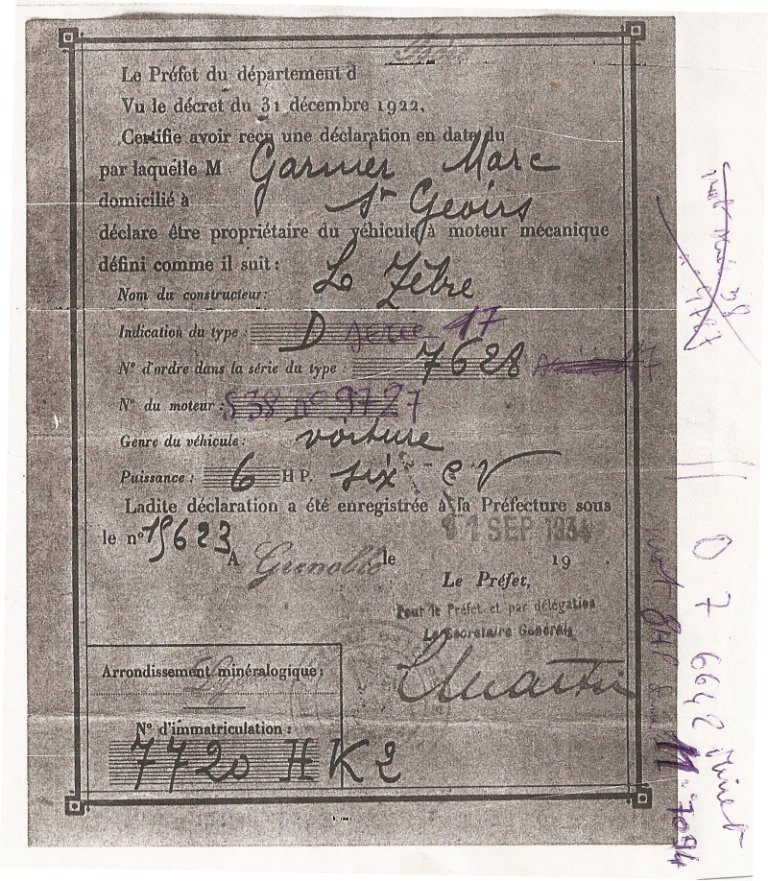 Le Préfet du département d
Vu le décret du 31 décembre 1922,
Certifie avoir reçu une déclaration en date du
par laquelle M Garnier Marc
domicilié à St Geoirs
déclare être propriétaire du véhicule à moteur mécanique
défini comme il suit :
Nom du constructeur : Le Zèbre
Indication du type : D serie 17
N° d'ordre dans la série du type : 7628
N° du moteur : 538 n° 9727
Genre du véhicule : voiture
Puissance : 6 HP. six CV
Ladite déclaration a été enregistrée à la Préfecture sous
le n° 15623
1 SEP 1934
A Grenoble le 19
Le Préfet,
Pour le Préfet et par délégation
Le Secrétaire Général,
Arrondissement minéralogique :
N° d'immatriculation :
7720 HK2